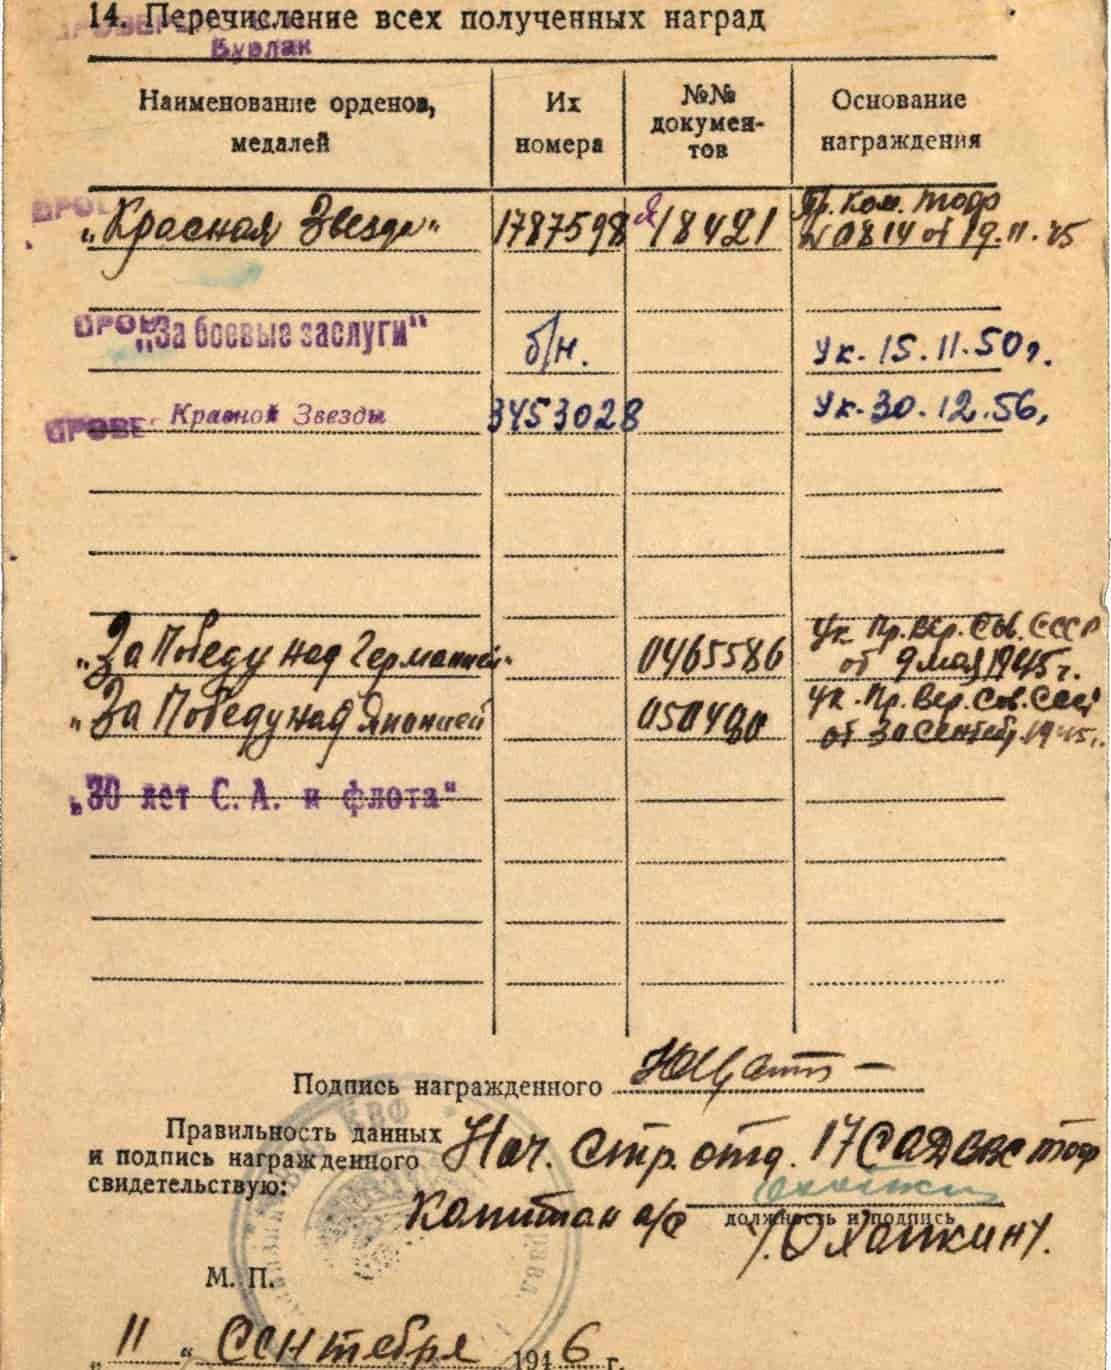 14. Перечисление всех полученных наград
Бурлак
Наименование орденов, медалей
Их номера
№№ документов
Основание награждения
„Красная Звезда“ 1787598 Я/18421 Пр. Ком. Тоф
№ 0814 от 19.11.45
„За боевые заслуги“ б/н. Ук. 15.11.50г.
Красной Звезды 3453028 Ук. 30.12.56,
„За Победу над Германией“ 0465586 Ук. Пр. Вер. Сов. СССР
от 9 мая 1945 г.
„За Победу над Японией 050480 Ук. Пр. Вер. Сов. СССР
от 30 Сентябр. 1945 г.
„30 лет С. А. и флота“
Подпись награжденного
Правильность данных
и подпись награжденного
свидетельствую:
Нач. Стр. отд. 17 САД ВВС Тоф
Капитан а/с
должность и подпись
/Охапкин/.
М. П.
„ 11 “ Сентября 1946 г.